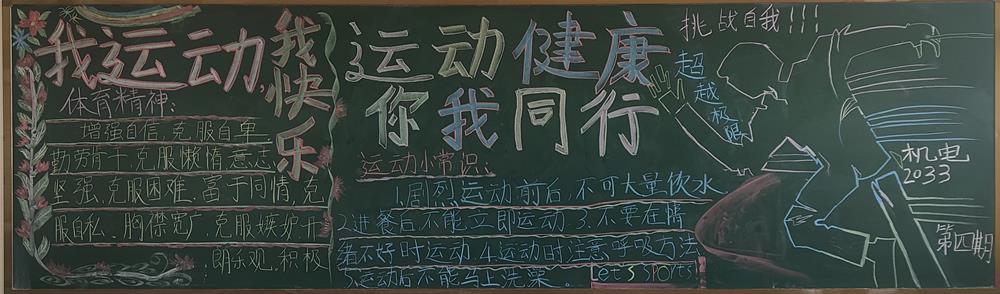 我运动,我快乐
体育精神:
增强自信,克服自卑
勤劳肯干,克服懒惰意志
坚强,克服困难,富于同情,克
服自私,胸襟宽广,克服嫉妒开
朗乐观,积极
运动健康
你我同行
运动小常识:
1.剧烈运动前后,不可大量饮水
2进餐后不能立即运动 3.不要在情
绪不好时运动.4.运动时注意呼吸方法
5.运动后不能马上洗澡。
Let's sports!
挑战自我!!!
超越极限
机电
2033
第四期